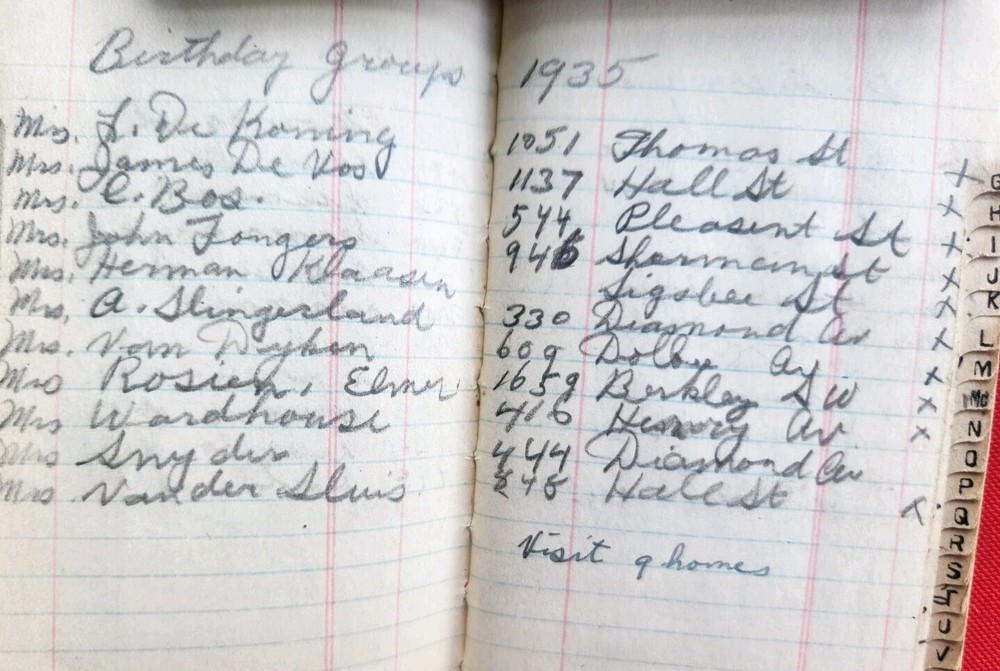 Birthday Groups 1935
Mrs. L. De Koning 1051 Thomas St
Mrs. James De Vos 1137 Hall St x
Mrs. C. Bos. 544 Pleasent St x
Mrs. John Fongers 946 Sherman St x
Mrs. Herman Klaasen Sigsbee St x
Mrs. A. Slingerland 330 Diamond Av x
Mrs. Van Dyken 609 Dolbee Av x
Mrs Rosien, Elmer 1659 Berkley SW x
Mrs Wardhouse 416 Henry Av x
Mrs Snyder 444 Diamond Av x
Mrs Van der Sluis 848 Hall St x
Visit 9 homes
G
H
I
J
K
L
M
Mc
N
O
P
Q
R
S
T
U
V